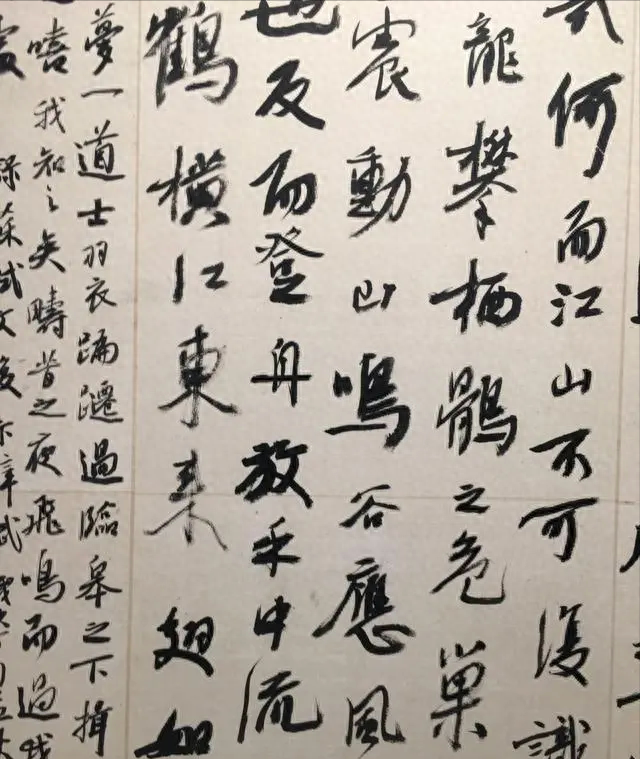 何而江山不可復識
龍攀栖鶻之危巢
震動山鳴谷應風
也反而登舟放乎中流
鶴橫江東來翅如
夢一道士羽衣蹁躚過臨皋之下揖
嘻我知之矣疇昔之夜飛鳴而過我
錄蘇軾文後赤